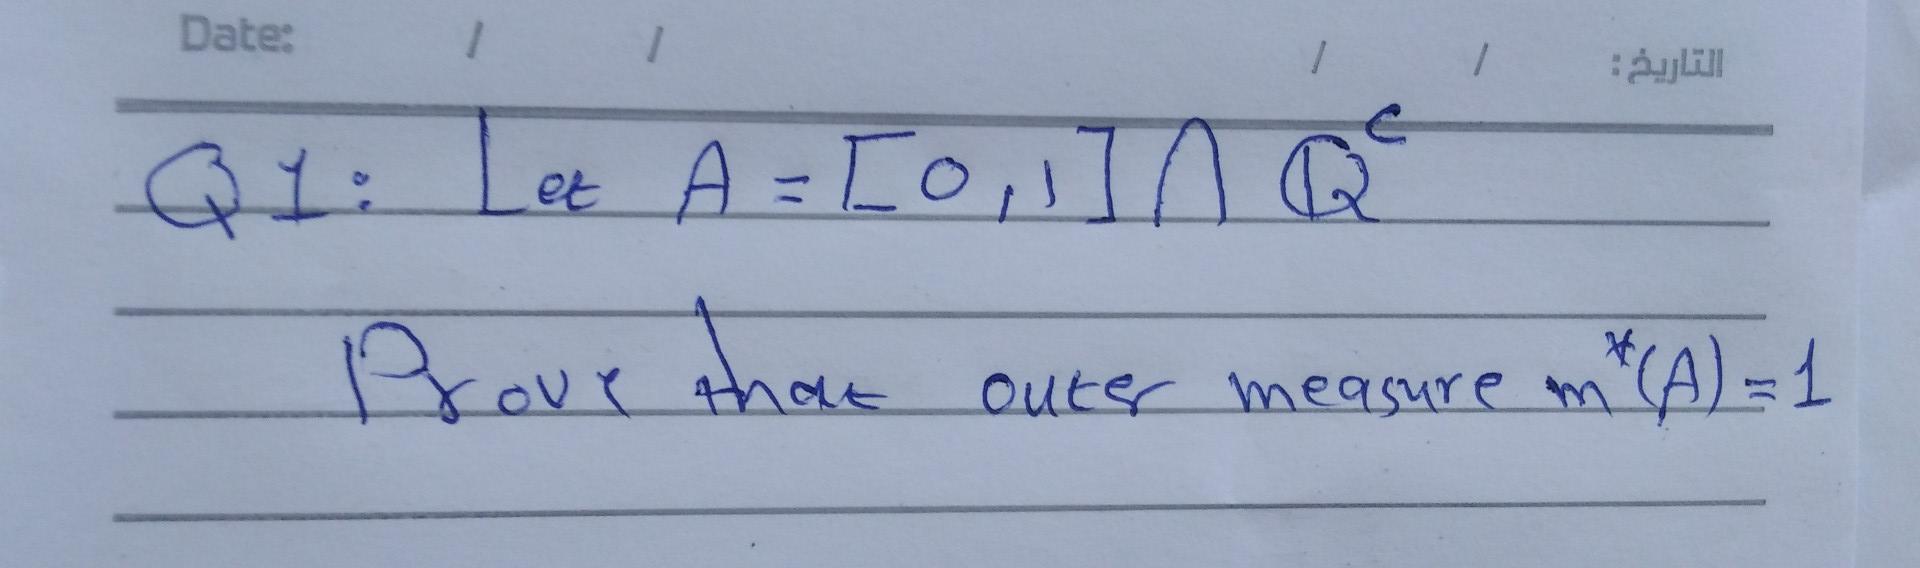 Date: / / / / التاريخ:
Q1: Let A = [0,1] ∩ ℚᶜ
Prove that outer measure m*(A) = 1